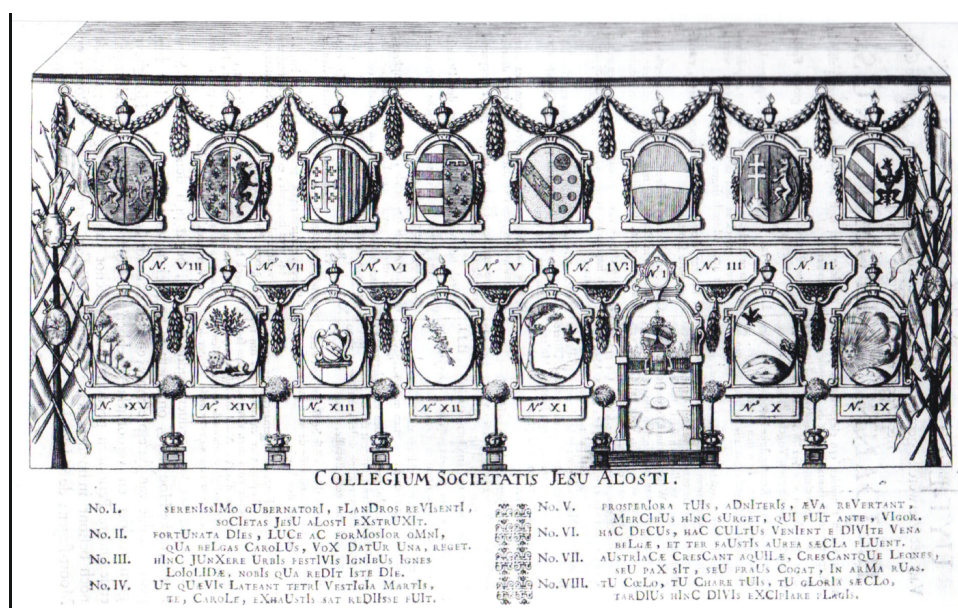 Nº VIII
Nº VII
Nº VI
Nº V
Nº IV:
Nº I
Nº III
Nº II
Nº XV
Nº XIV
Nº XIII
Nº XII
Nº XI
Nº X
Nº IX
COLLEGIUM SOCIETATIS JESU ALOSTI.
No. I. SERENIssIMo GUBERNATORI, FLANDROS REVISENTI,
SOCIETAS JESU ALOSTI EXSTRUXIT.
No. II. FORTUNATA DIES, LUCE AC FORMOSIOR OMNI,
QUA BELGAS CAROLUS, VOX DATUR UNA, REGET.
No. III. HINC JUNXERE URBIS FESTIVIS IGNIBUS IGNES
LOIOLIDÆ, NOBIS QUA REDIT ISTE DIE.
No. IV. UT QUÆVIS LATEANT TETRI VESTIGIA MARTIS,
TE, CAROLE, EXHAUSTIS SAT REDIISSE FUIT.
No. V. PROSPERIORA TUIS, ADNITERIS, ÆVA REVERTANT,
MERCIBUS HINC SURGET, QUI FUIT ANTE, VIGOR.
No. VI. HAC DECUS, HAC CULTUS VENIENT E DIVITE VENA
BELGÆ, ET TER FAUSTIS AUREA SÆCLA FLUENT.
No. VII. AUSTRIACÆ CRESCANT AQUILÆ, CRESCANTQUE LEONES,
SEU PAX SIT, SEU FRAUS COGAT, IN ARMA RUAS.
No. VIII. TU CŒLO, TU CHARE TUIS, TU GLORIA SÆCLO,
TARDIUS HINC DIVIS EXCIPIARE PLAGIS.